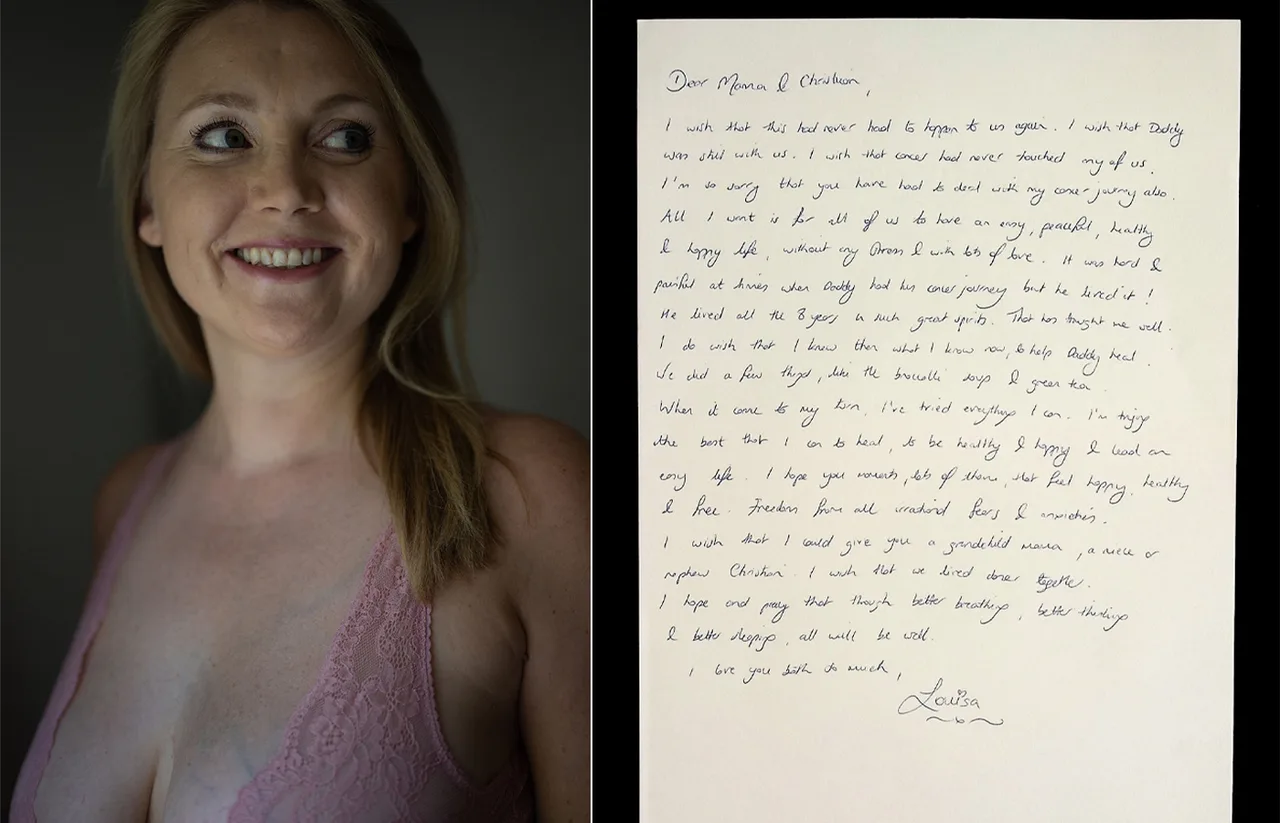 Dear Mama & Christian,
I wish that this had never had to happen to us again. I wish that Daddy
was still with us. I wish that cancer had never touched any of us.
I'm so sorry that you have had to deal with my cancer journey also.
All I want is for all of us to have an easy, peaceful, healthy
& happy life, without any stress & with lots of love. It was hard &
painful at times when Daddy had his cancer journey but he lived it!
He lived all the 8 years in such great spirits. That has taught me well.
I do wish that I knew then what I know now, to help Daddy heal.
We did a few things, like the broccolli soup & green tea.
When it came to my turn, I've tried everything I can. I'm trying
the best that I can to heal, to be healthy & happy & lead an
easy life. I hope you moments, lots of them, that feel happy, healthy
& free. Freedom from all irrational fears & anxieties.
I wish that I could give you a grandchild Mama, a niece or
nephew Christian. I wish that we lived closer together.
I hope and pray that through better breathing, better thinking
& better sleeping, all will be well.
I love you both so much,
Louisa